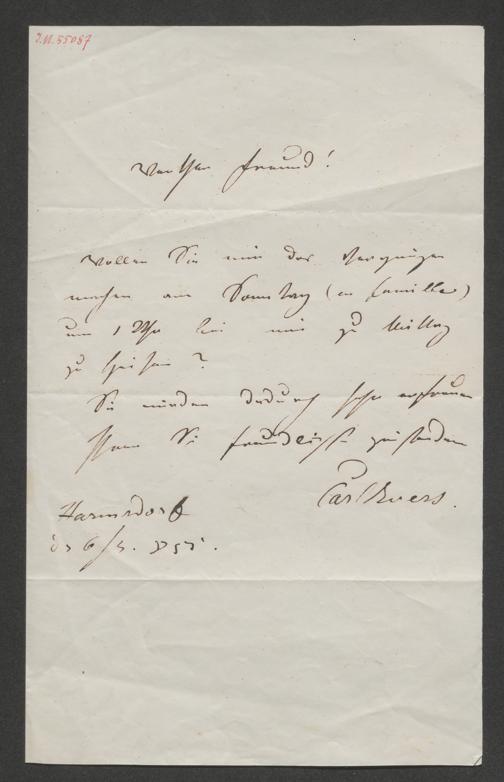 I.N. 55087
Werther Freund!
Wollen Sie mir das Vergnügen
machen am Sonntag (en famille)
um 1 Uhr bei mir zu Mittag
zu speisen?
Sie würden dadurch sehr erfreuen
Ihren Sie freundlichst grüßenden
Carl Evers.
Harmsdorf
6/5.